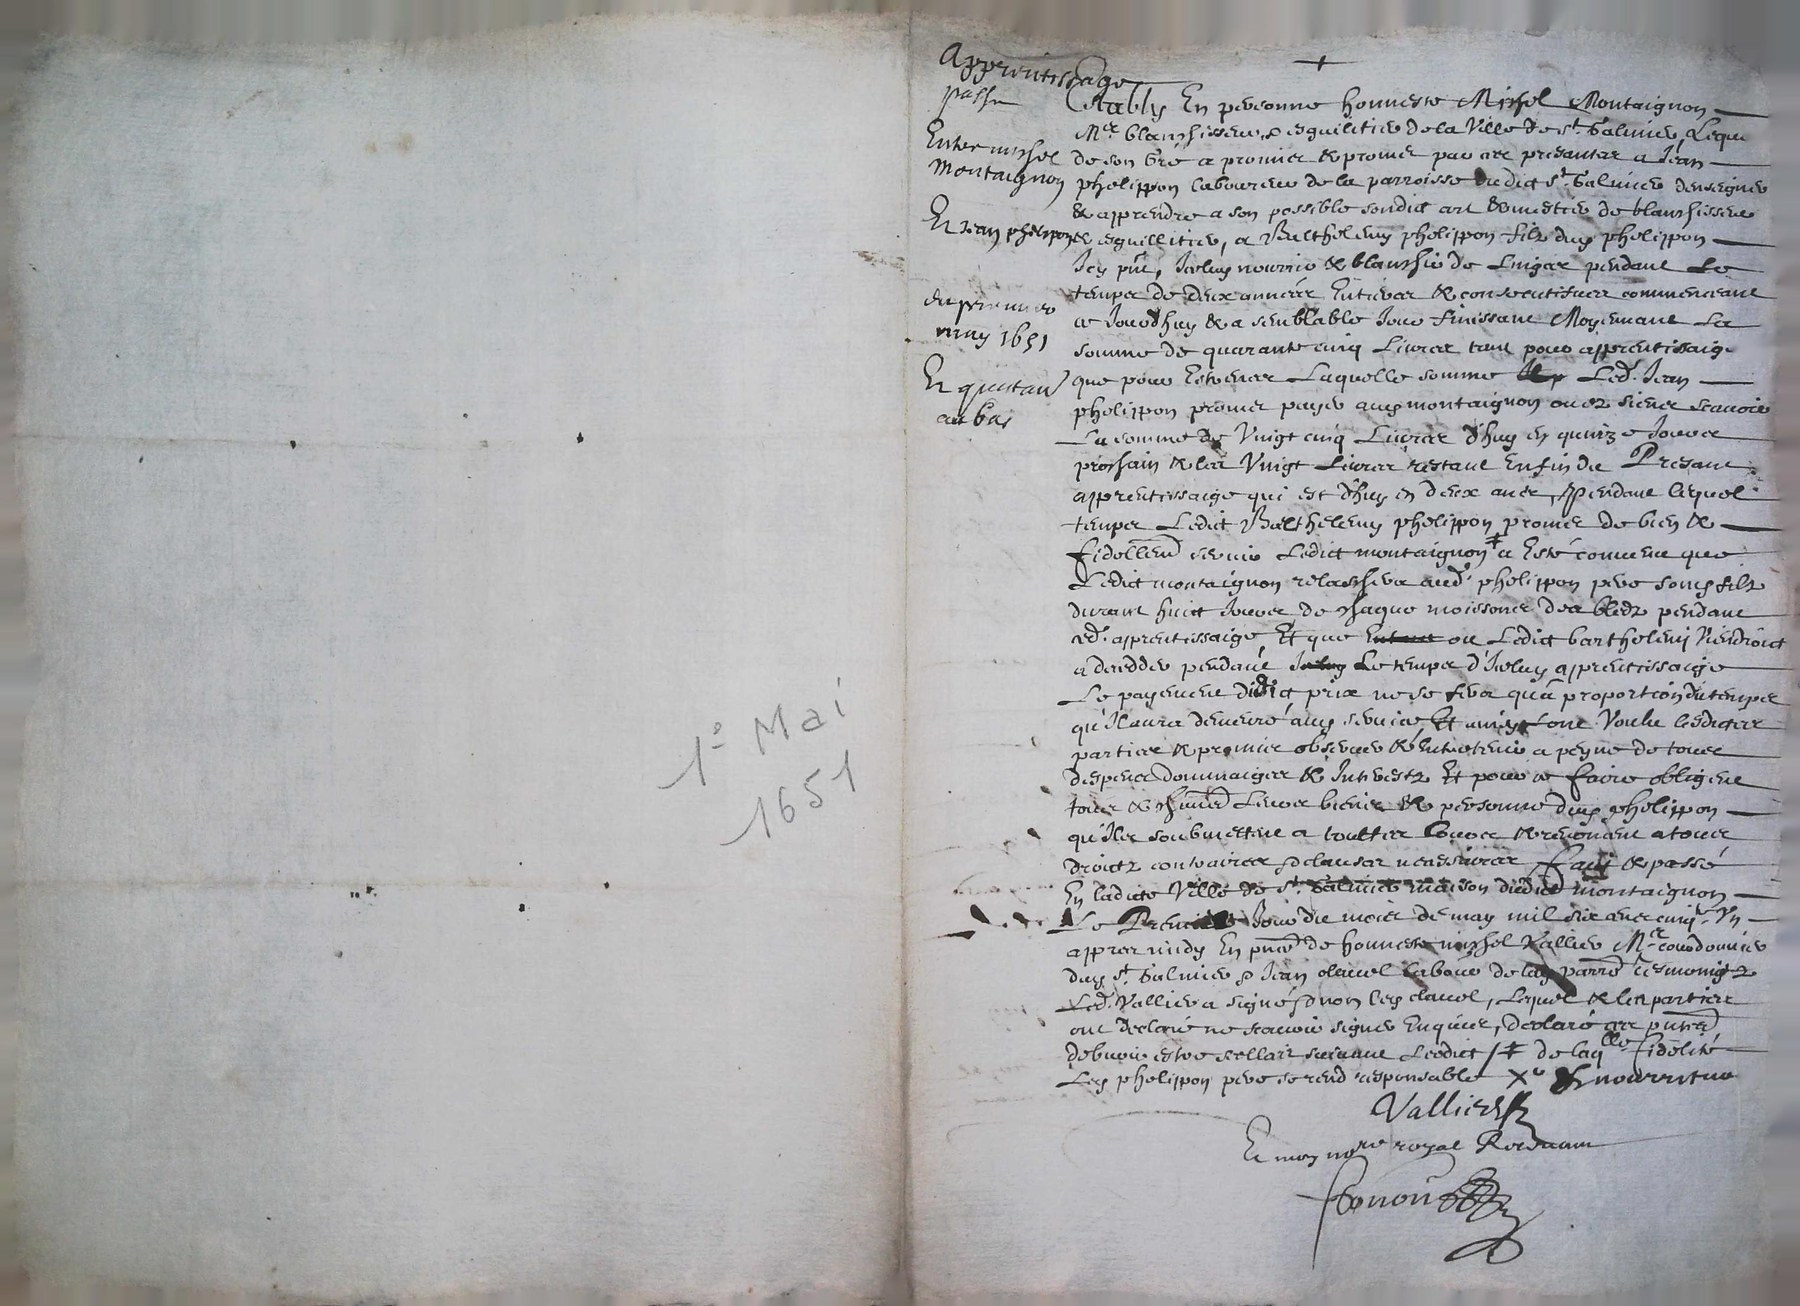 Apprentissage
passé
Entre michel
Montaignon
Et Jean phelippon
du premier
may 1651
Et quictance
au bas
1° Mai
1651
Estably En personne honneste Michel Montaignon
Mr. blanchisseur & esguilitier de la Ville de St. Galmier Lequel
de son Gré a promis & promet par ces presantes a Jean
phelippon laboureur de la parroisse dudict St. Galmier denseigner
& apprendre a son possible sondict art & mestier de blanchisseur
& esguillitier, a Balthelemy phelippon filz dud phelippon
Icy pnt, Iceluy nourrir & blanchir de Linges pendant Le
temps de deux années Entieres & consecutifves commenceant
ce Jourdhuy & a semblable Jour finissant Moyennant La
somme de quarante cinq Livres tant pour apprentissaige
que pour Laquelle somme Led. Jean
phelippon promet payer aud montaignon ou es siens scavoir
La somme de Vingt cinq Livres d'huy en quinze Jours
prochain & les Vingt Livres restant En fin du Presant
apprentissaige qui est d'huy en deux ans, pendant lequel
temps Ledict Balthelemy phelippon promet de bien &
fidellemt servir Ledict montaignon ‡ a Esté convenu que
Ledict montaignon relaschera aud. phelippon pere sond filz
durant huict Jours de chaque moissons des bledz pendant
led. apprentissaige Et que ou Ledict barthelemy Viendroict
a deceder pendant Le temps d'Iceluy apprentissaige
Le payement dudict prix ne se fera qu'a proportion du temps
qu'il aura demeuré aud service Et ainsy L'ont Voulu lesdictes
parties & promis observer & Entretenir a peyne de tous
despens dommaiges & Interestz Et pour ce faire obligent
tous & Leurs biens & personne dud phelippon
qu'Ilz soubmettent a touttes Cours & renoncent a tous
droictz contraires & clauses necessaires faict & passé
En ladicte Ville de St. Galmier maison dudict montaignon
Le Premier Jour du mois de may mil six ans cinqte. Un
appres midy En pnce de honneste michel Vallier Mr. cordonnier
dud St. Galmier & Jean clavel Labour de lad parre tesmoingz
Led. Vallier a signé & non led clavel, Lequel & les parties
ont declaré ne scavoir signer Enquis, declaré ces pntes
debvoir estre scellair suivant Ledict / ‡ de laqlle fidelité
Led phelippon pere se rend responsable X & nourriture
Vallier
Et moy nore royal Recevant